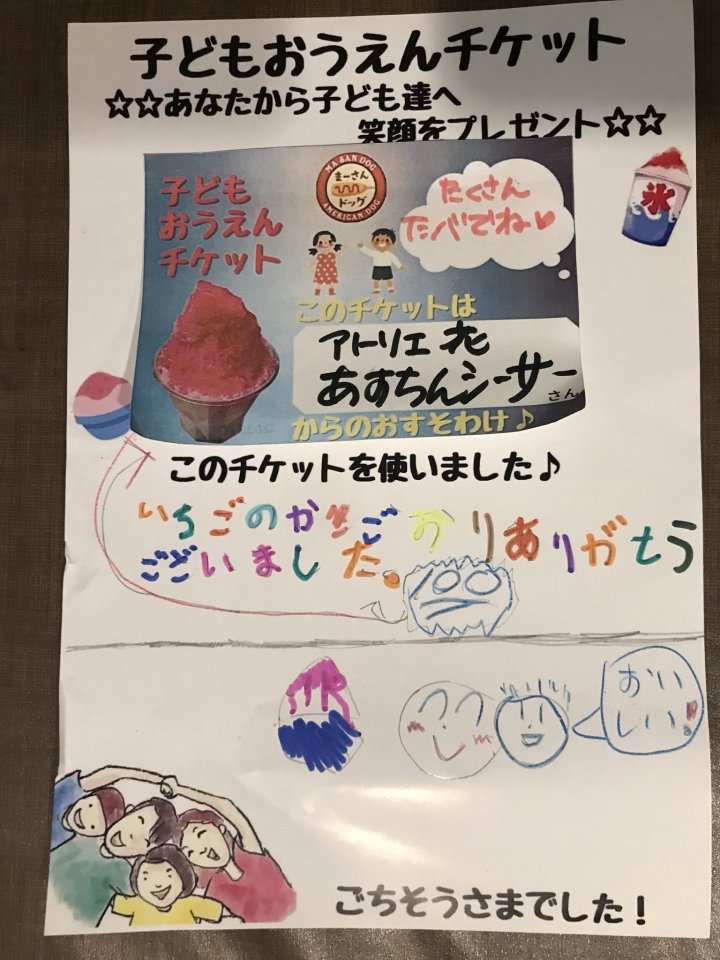 子どもおうえんチケット
☆☆あなたから子ども達へ
笑顔をプレゼント☆☆
氷
子ども
おうえん
チケット
MA SAN DOG
まーさん
ドッグ
AMERICAN DOG
たくさん
たべてね♥
このチケットは
アトリエ花
あすちんシーサー
さん
からのおすそわけ♪
このチケットを使いました♪
いちごのかきごおりありがとう
ございました。
100
おい
しい!
ごちそうさまでした！